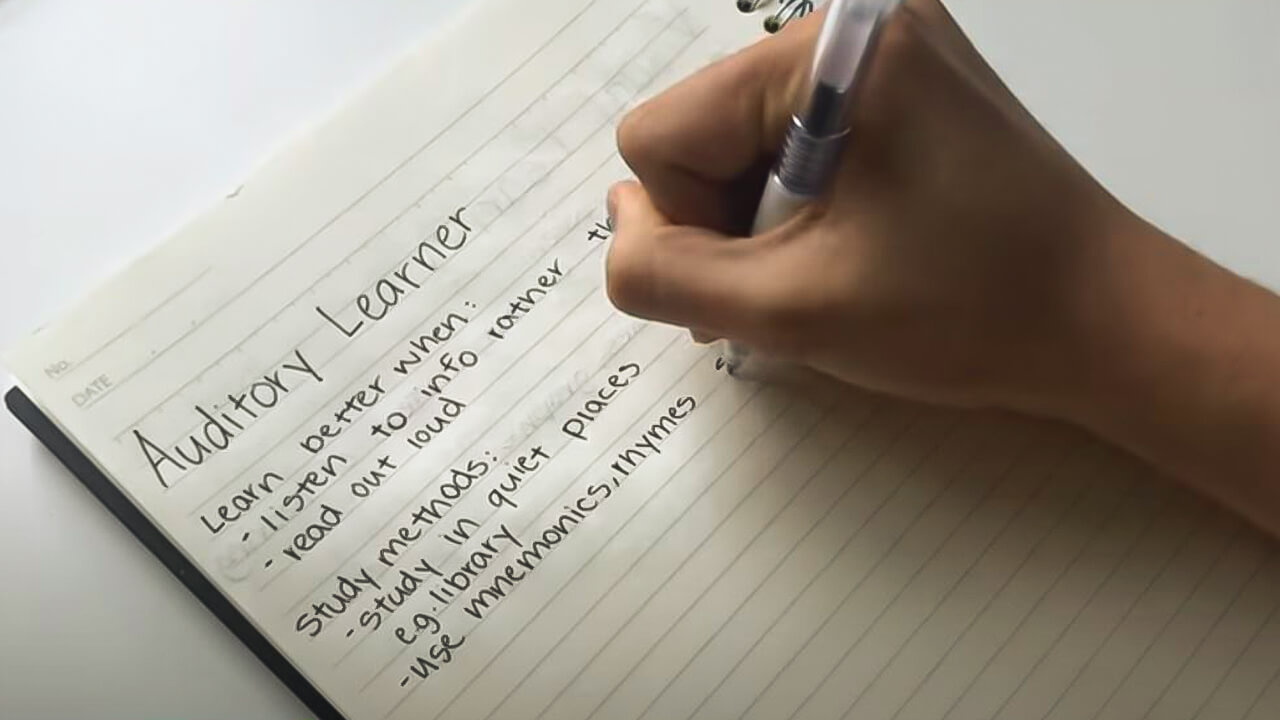 No.
DATE
Auditory Learner
Learn better when:
- listen to info rather
- read out loud
Study methods:
- study in quiet places
e.g. library
- use mnemonics, rhymes